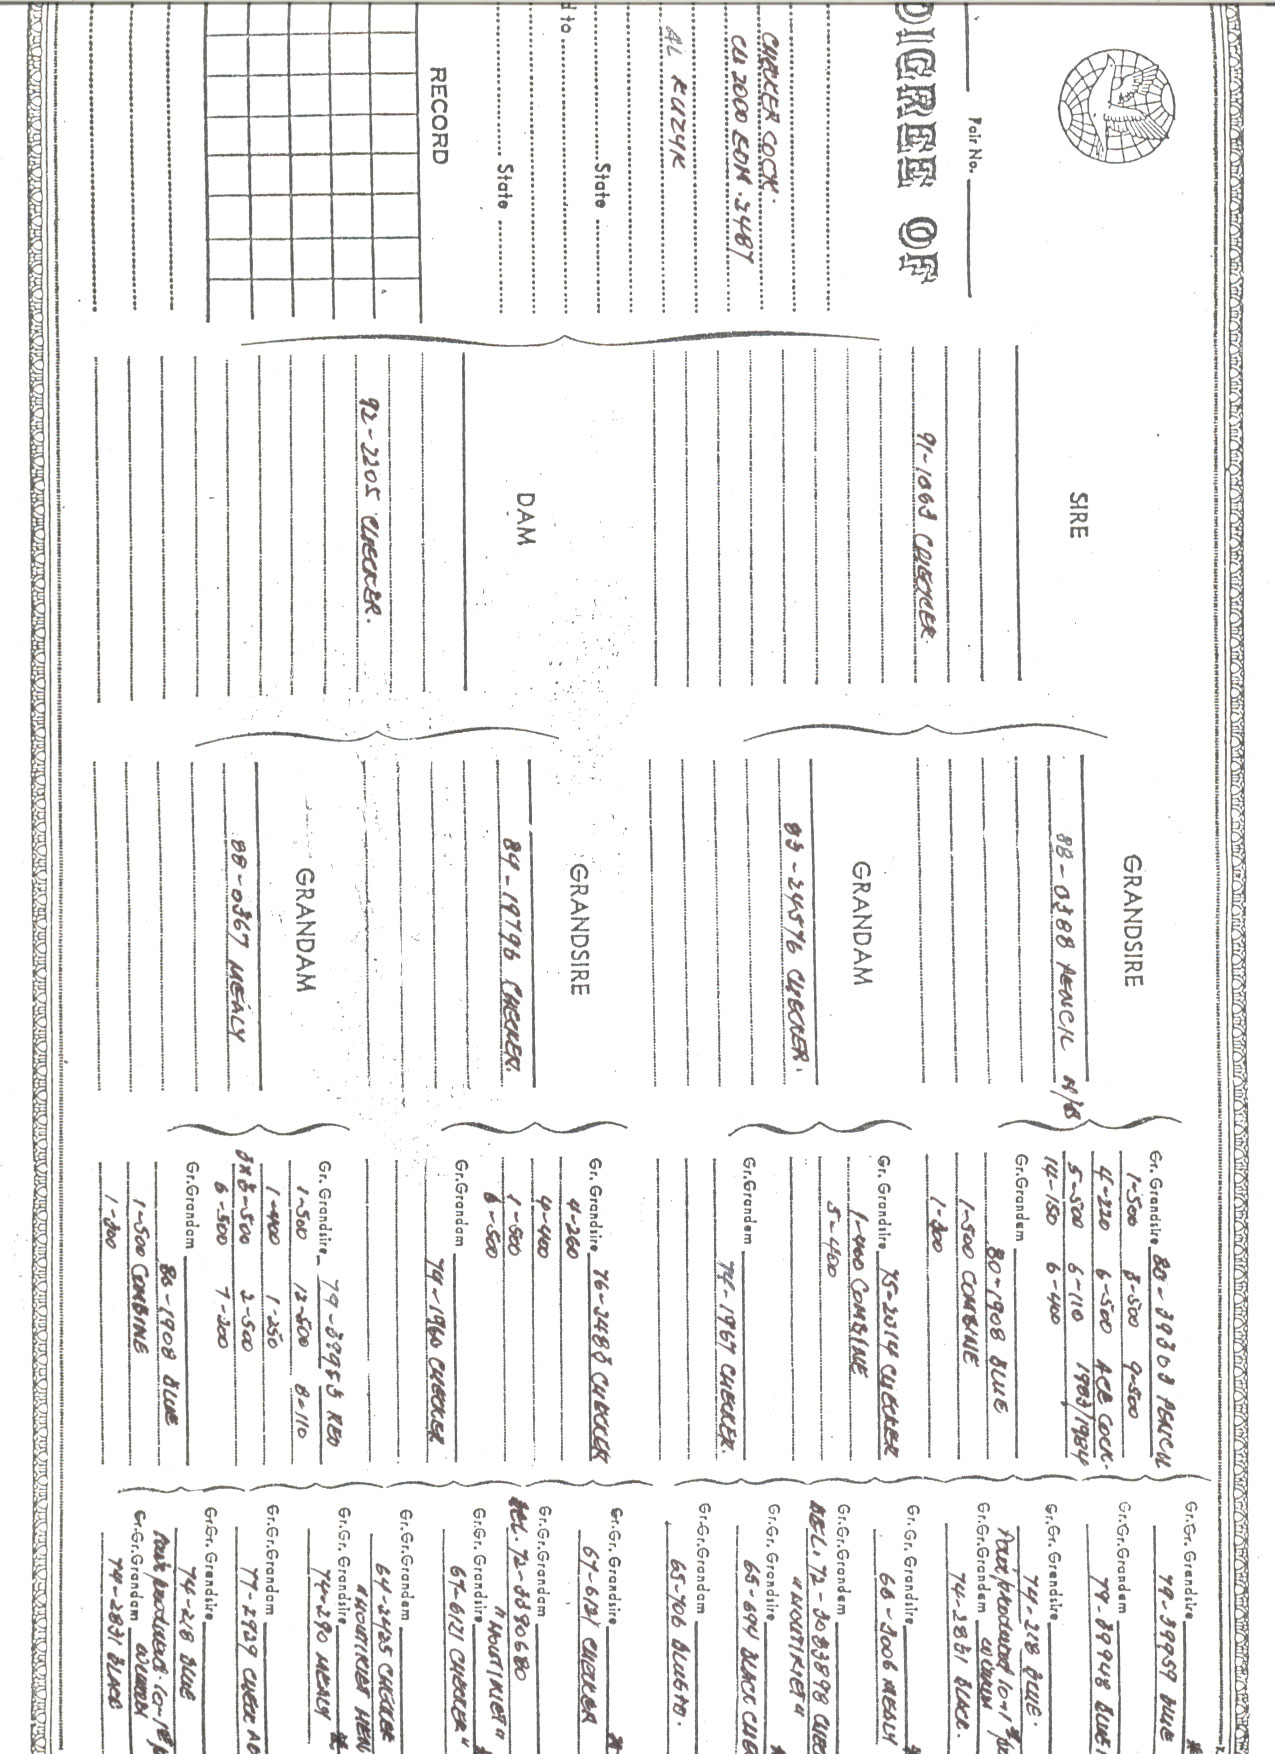 DIGREE OF
Pair No.
CHECKER COCK.
CU 2000 EDM. 2487
AL KUZYK
State
d to
State
RECORD
SIRE
91-1063 CHECKER.
DAM
92-2205 CHECKER.
GRANDSIRE
88-0388 PENCIL
GRANDAM
83-24576 CHECKER.
GRANDSIRE
84-19796 CHECKER.
GRANDAM
88-0367 MEALY
Gr. Grandsire 80-39303 PENCIL
1-500 3-500 9-500
4-220 6-500 ACE COCK.
5-500 6-110 1983/1984
14-150 6-400
Gr.Grandam
80-1908 BLUE
1-500 COMBINE
1-300
Gr. Grandsire 75-2014 CHECKER
1-400 COMBINE
3-400
Gr.Grandam
74-1967 CHECKER.
Gr. Grandsire 76-2483 CHECKER
4-260
4-400
1-500
6-500
Gr.Grandam
74-1960 CHECKER
Gr. Grandsire 79-39953 RED
1-500 12-500 8-110
1-400 1-250
3x3-500 2-500
6-500 7-200
Gr.Grandam
80-1908 BLUE
1-500 COMBINE
1-300
Gr.Gr. Grandsire
79-39959 BLUE
Gr.Gr. Grandam
79-39948 BLUE
Gr.Gr. Grandsire
74-218 BLUE.
Pair produced 10-1st
Gr.Gr.Grandam winners
74-2831 BLACK.
Gr.Gr. Grandsire
68-3006 MEALY
Gr.Gr.Grandam
BEL. 72-3033898
"HOUTIRIET"
Gr.Gr. Grandsire
65-694 BLACK
Gr.Gr.Grandam
65-706 BLUE
Gr.Gr. Grandsire
67-6121 CHECKER
Gr.Gr.Grandam
BEL. 72-3390680
"HOUTIRIET"
Gr.Gr. Grandsire
67-6121 CHECKER
Gr.Gr. Grandam
64-2425 CHECKER
"HOUTIRIET HEN
Gr.Gr. Grandsire
74-290 MEALY
Gr.Gr. Grandam
77-2929 CHECK
Gr.Gr. Grandsire
74-218 BLUE
Pair produced 10-1st
Gr.Gr. Grandam winners
74-2831 BLACK